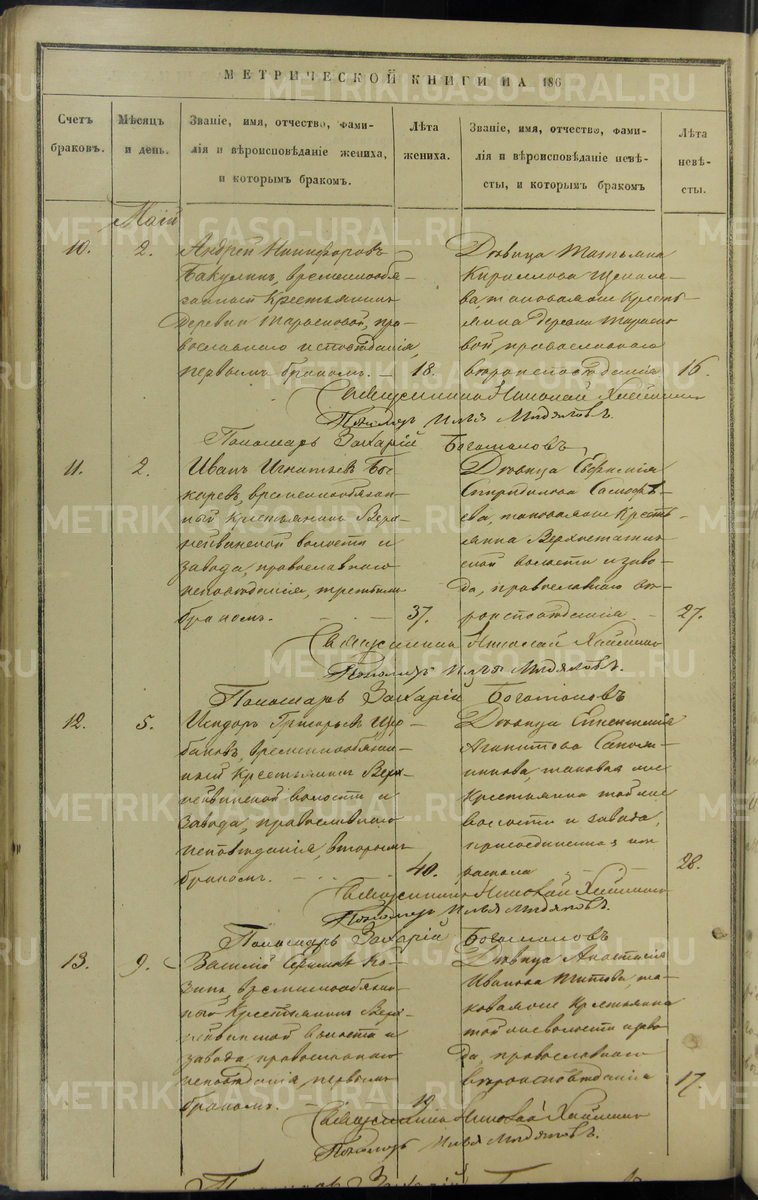 МЕТРИЧЕСКОЙ КНИГИ НА 186
Счетъ браковъ.
Мѣсяцъ и день.
Званіе, имя, отчество, фами-
лія и вѣроисповѣданіе жениха,
и которымъ бракомъ.
Лѣта жениха.
Званіе, имя, отчество, фами-
лія и вѣроисповѣданіе невѣ-
сты, и которымъ бракомъ
Лѣта невѣ-
сты.
Май
10.
2.
Андрей Никифоровъ
Бакулинъ, временнообя-
занный крестьянинъ
деревни Тарасковой, пра-
вославнаго исповѣданія,
первымъ бракомъ.
18.
Дѣвица Татьяна
Кириллова
ва таковаго же кресть-
янина деревни Тараско-
вой, православнаго
вѣроисповѣданія
16.
Николай
Илья
Пономарь Захарій Богомоловъ
11.
2.
Иванъ Игнатьевъ Бо-
каревъ, временнообязан-
ный крестьянинъ Верх-
нейвинской волости и
завода, православнаго
исповѣданія, третьимъ
бракомъ.
37.
Дѣвица Евфимія
Спиридонова
ева, таковаго же кресть-
янина
ской волости и заво-
да, православнаго вѣ-
роисповѣданія
27.
Николай
Илья
Пономарь Захарій Богомоловъ
12.
5.
Исидоръ Григорьевъ Щер-
баковъ, временнообязан-
ный крестьянинъ Верх-
нейвинской волости и
завода, православнаго
исповѣданія, вторымъ
бракомъ.
40.
Дѣвица
Агапитова
никова, таковаго же
крестьянина той же
волости и завода,
присоединенная изъ
раскола
28.
Николай
Илья
Пономарь Захарій Богомоловъ
13.
9.
Василій Ко-
зинъ, временнообязан-
ный крестьянинъ Верх-
нейвинской волости и
завода, православнаго
исповѣданія, первымъ
бракомъ.
19.
Дѣвица Анастасія
Иванова Титова, та-
коваго же крестьянина
той же волости и заво-
да, православнаго
вѣроисповѣданія
17.
Николай
Илья
METRIKI.GASO-URAL.RU